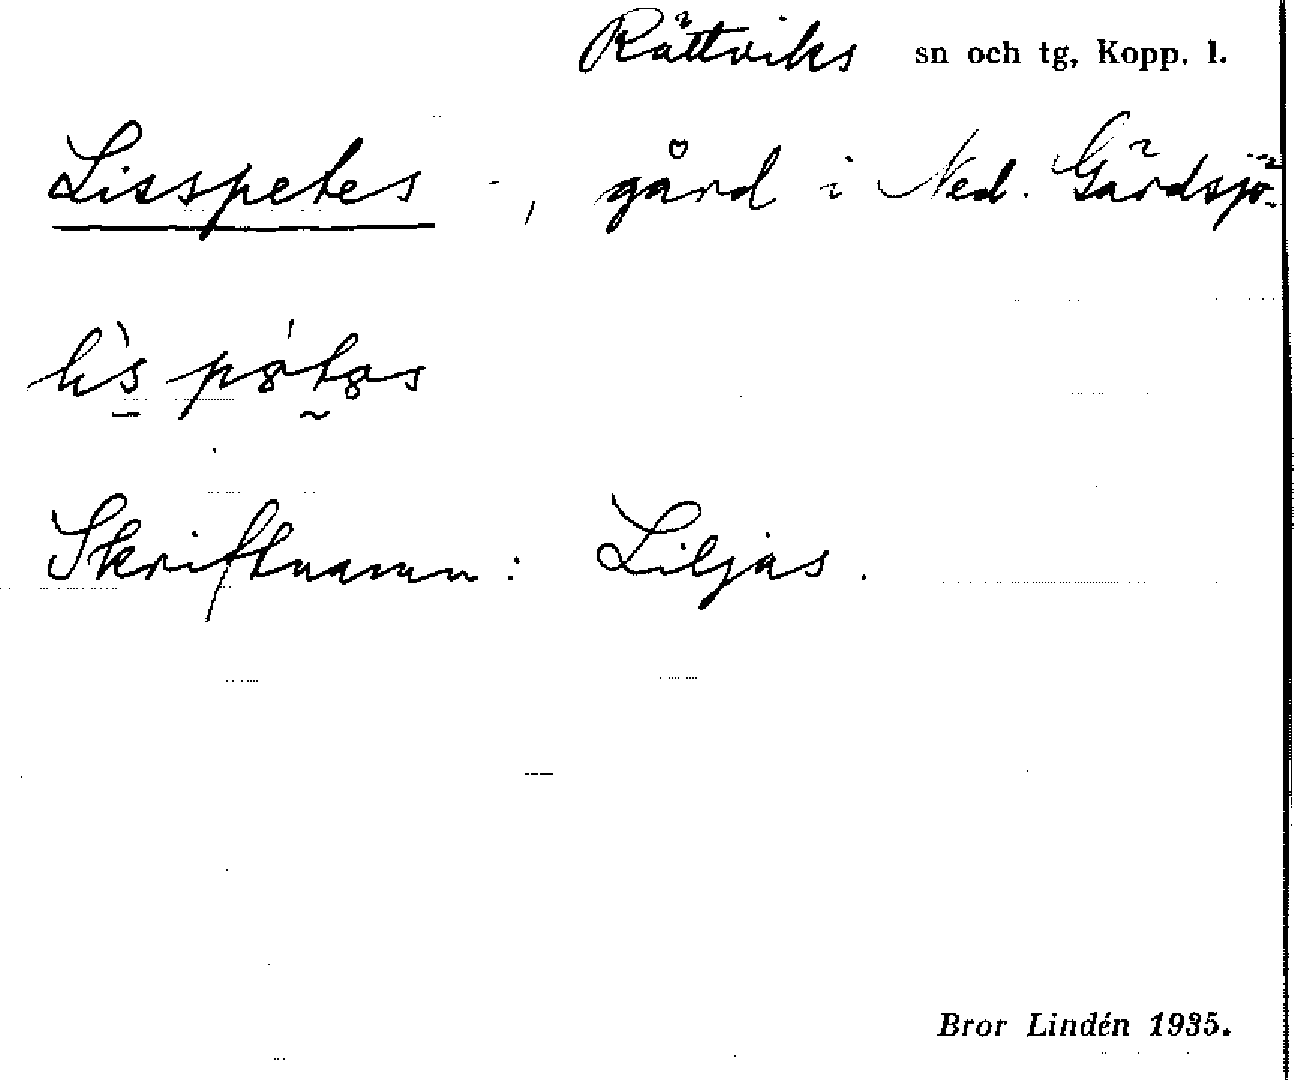 Rättviks sn och tg, Kopp. l.
Lisspetes -, gård i Ned. Gärdsjö.
Skriftnamn: Liljas.
Bror Lindén 1935.